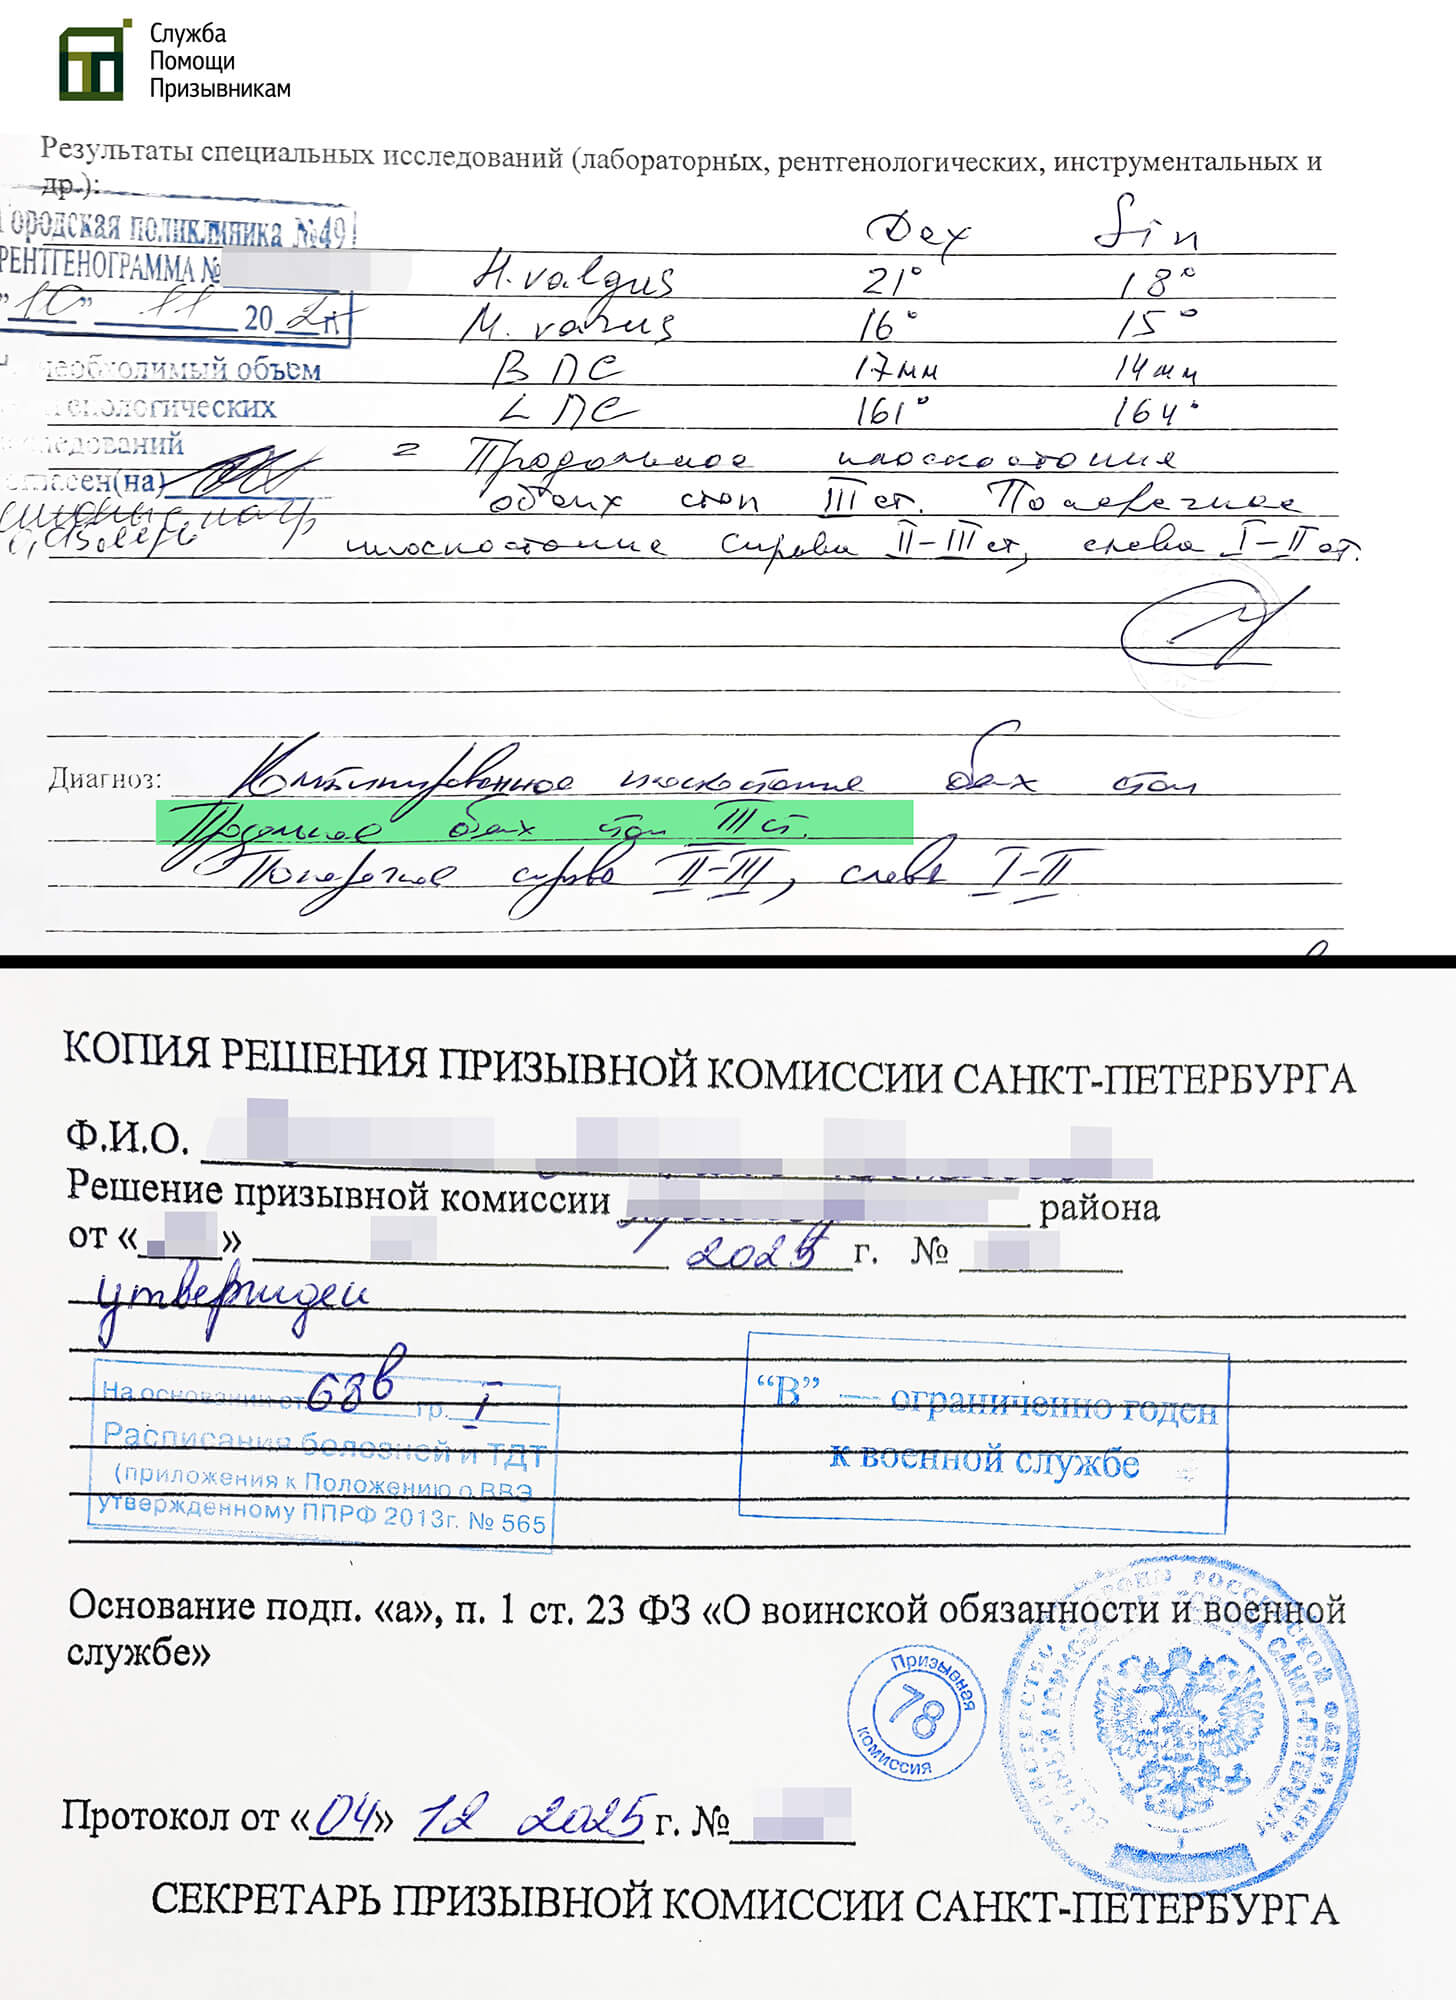 Служба
Помощи
Призывникам
Результаты специальных исследований (лабораторных, рентгенологических, инструментальных и
др.):
Городская поликлиника №49
РЕНТГЕНОГРАММА №
"10" 11 20 г.
необходимый объем
рентгенологических
исследований
согласен(на)
Dex Sin
H. valgus 21° 18°
M. varus 16° 15°
В ПС 17мм 14мм
L ПС 161° 164°
= Продольное плоскостопие
обеих стоп III ст. Поперечное
плоскостопие справа II-III ст, слева I-II ст.
Диагноз: Комбинированное плоскостопие обеих стоп
Продольное обеих стоп III ст.
Поперечное справа II-III, слева I-II
КОПИЯ РЕШЕНИЯ ПРИЗЫВНОЙ КОМИССИИ САНКТ-ПЕТЕРБУРГА
Ф.И.О.
Решение призывной комиссии района
от « » 2025 г. №
утвержден
На основании ст 68в гр. I
Расписания болезней и ТДТ
(приложения к Положению о ВВЭ
утвержденному ППРФ 2013г. № 565
"В" — ограниченно годен
к военной службе
Основание подп. «а», п. 1 ст. 23 ФЗ «О воинской обязанности и военной
службе»
Призывная
78
комиссия
Протокол от «04» 12 2025 г. №
СЕКРЕТАРЬ ПРИЗЫВНОЙ КОМИССИИ САНКТ-ПЕТЕРБУРГА